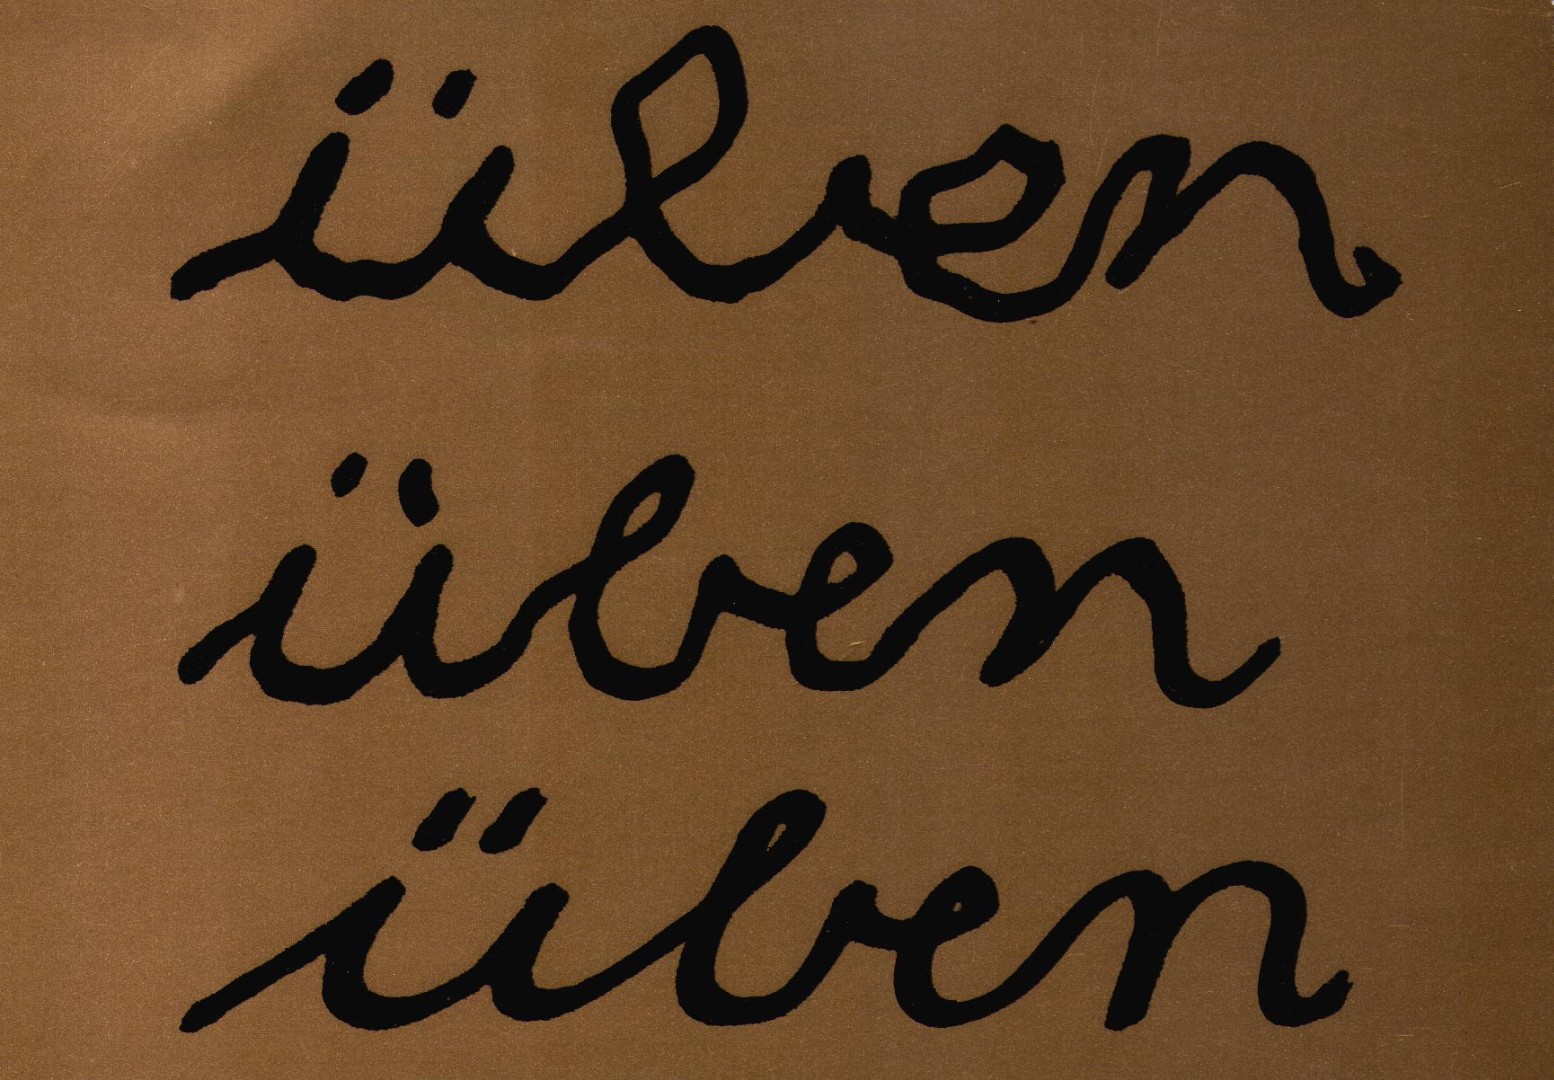 üben
üben
üben